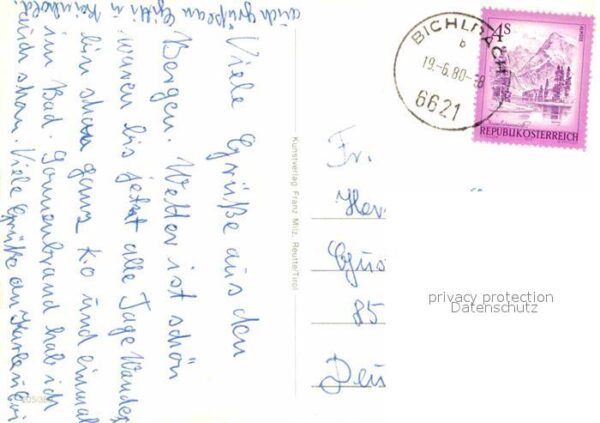 Viele Grüße aus den
Bergen. Wetter ist schön
waren bis jetzt alle Tage Wandern
bin schon ganz k.o und einmal
im Bad. Sonnenbrand hab ich
auch schon. Viele Grüße an
auch Grüße an
Reinhold.
Kunstverlag Franz Milz, Reutte/Tirol
BICHLBACH
b
19.-6.80-
6621
4S
REPUBLIK ÖSTERREICH
Fr.
Her
Gus
85
Deu
privacy protection
Datenschutz